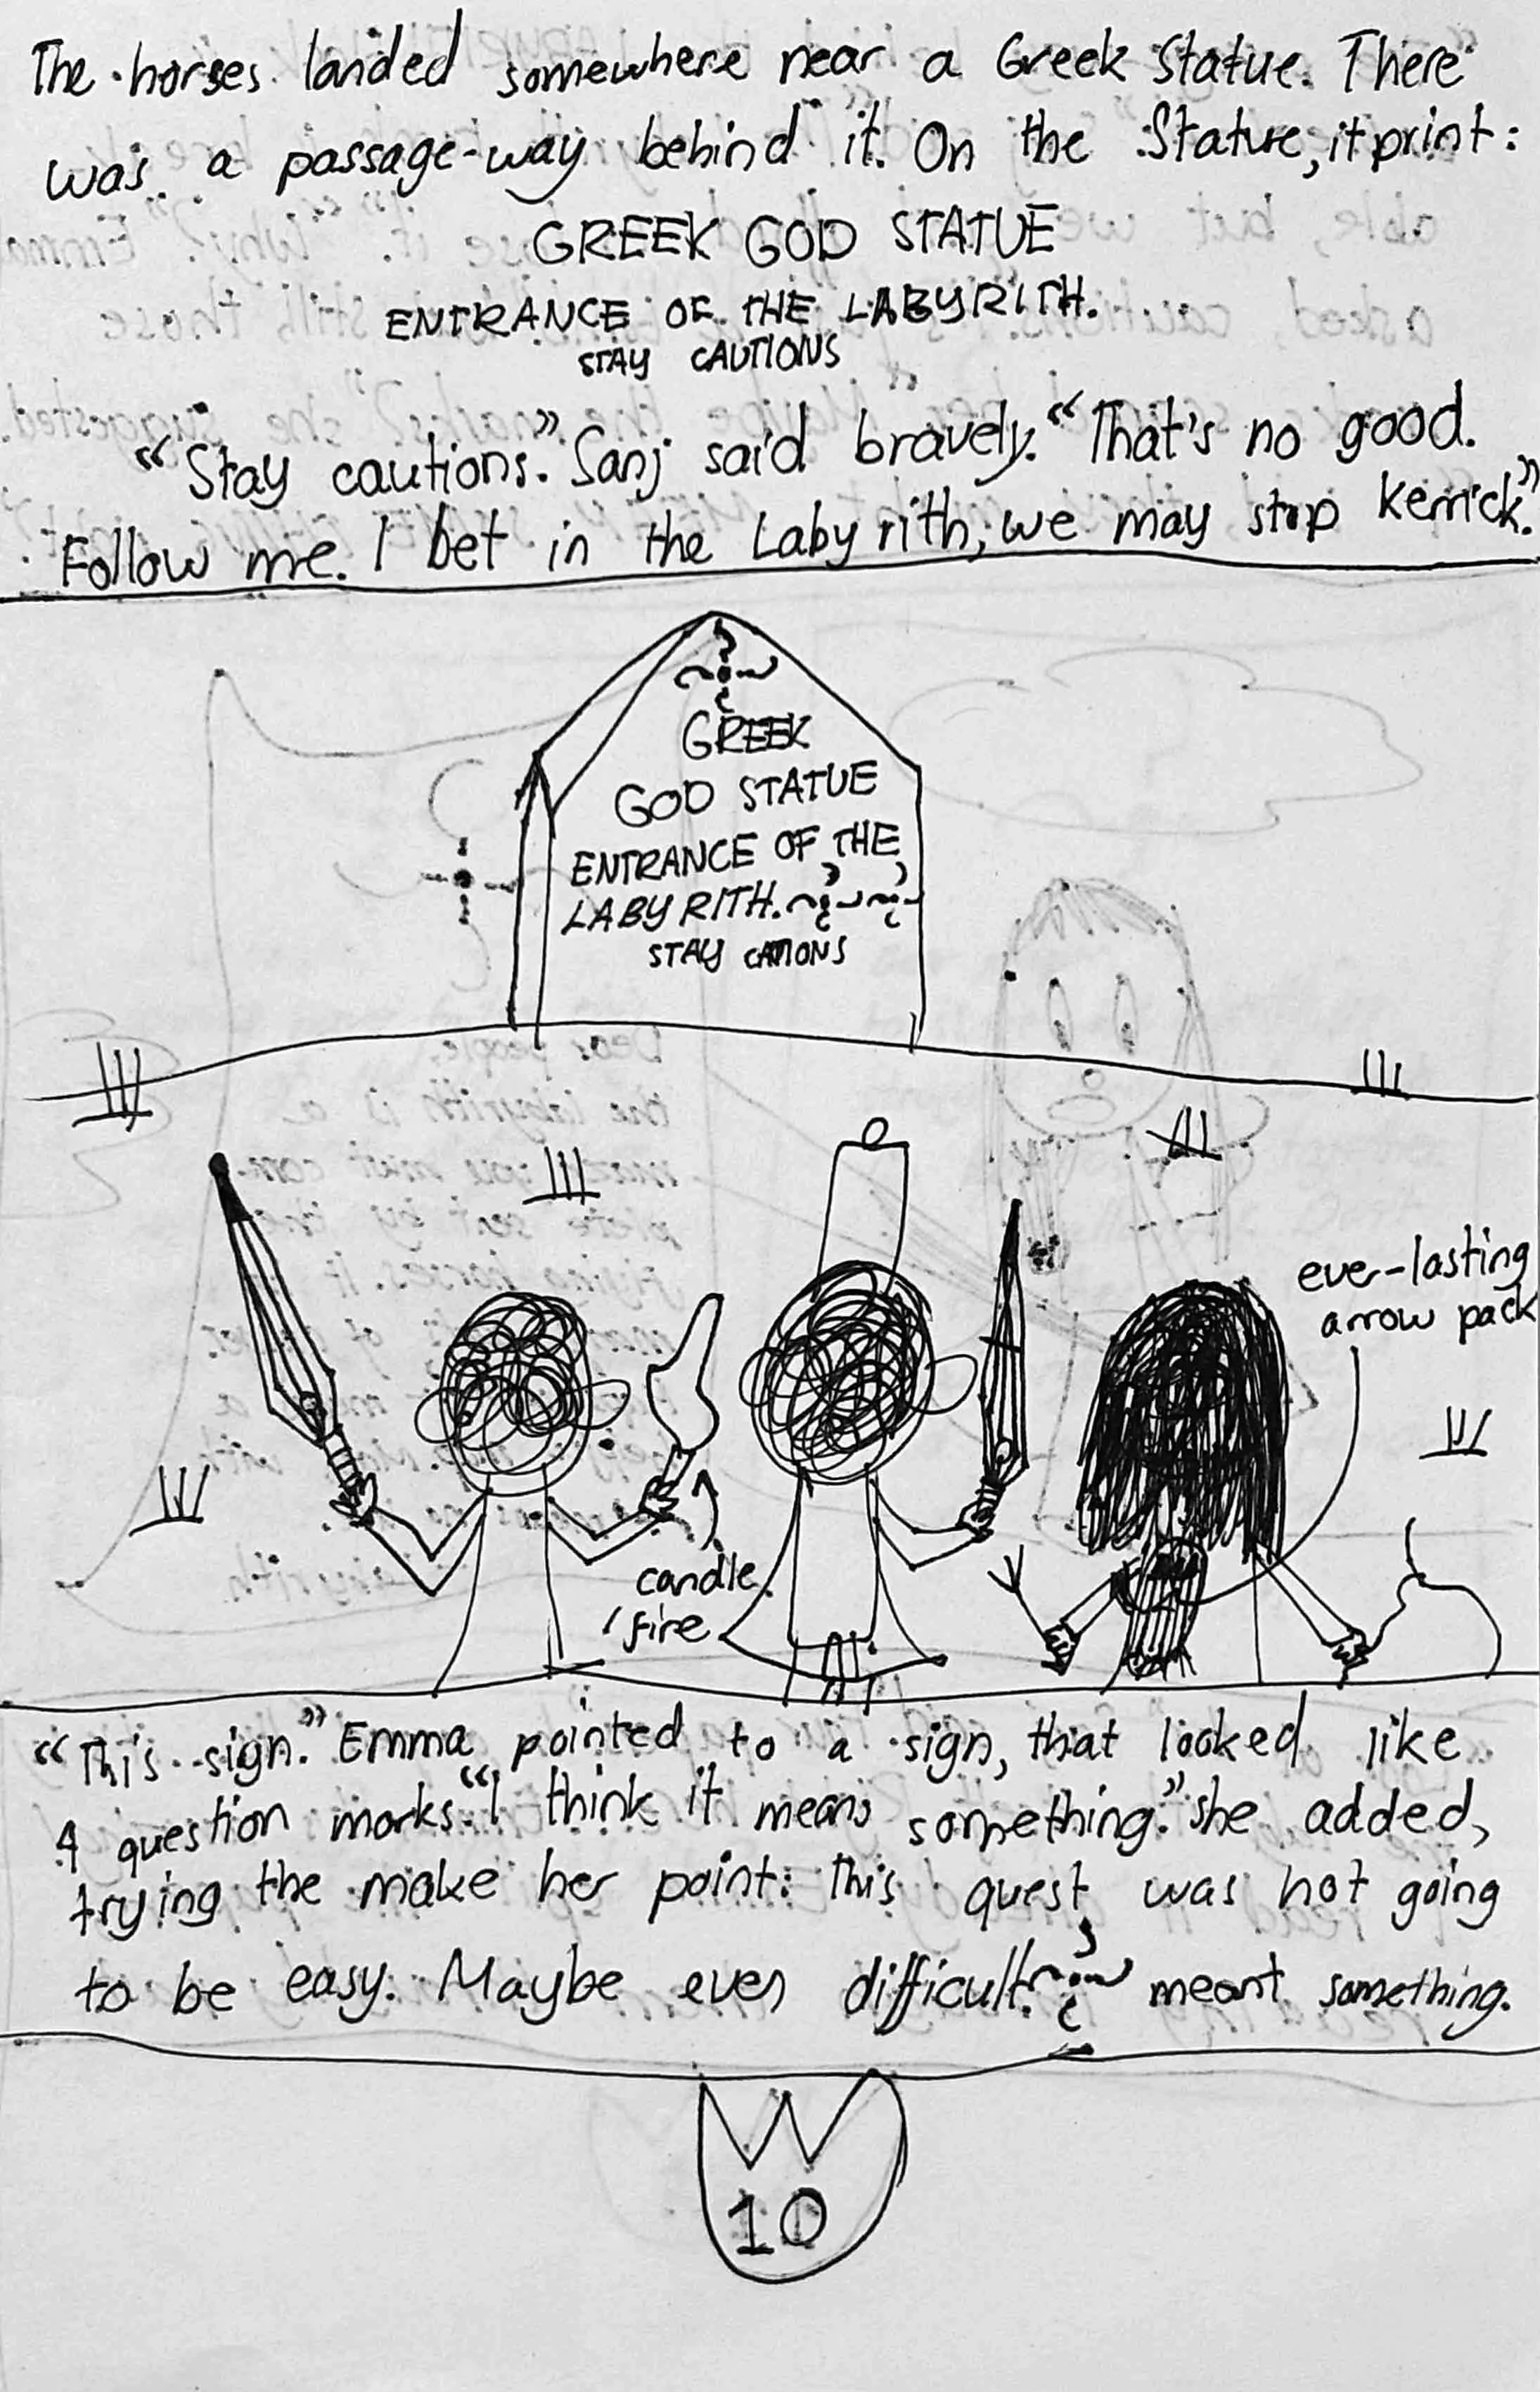 The horses landed somewhere near a Greek Statue. There
was a passage-way behind it. On the Statue, it print:
GREEK GOD STATUE
ENTRANCE OF THE LABYRITH.
STAY CAUTIONS
"Stay cautions." Sanj said bravely. "That's no good.
Follow me. I bet in the Labyrith, we may stop Kerrick."
GREEK
GOD STATUE
ENTRANCE OF THE
LABYRITH.
STAY CATIONS
ever-lasting
arrow pack
candle
fire
"This sign." Emma pointed to a sign, that looked like
4 question marks. "I think it means something." she added,
trying the make her point. This quest was not going
to be easy. Maybe even difficult. meant something.
W
10